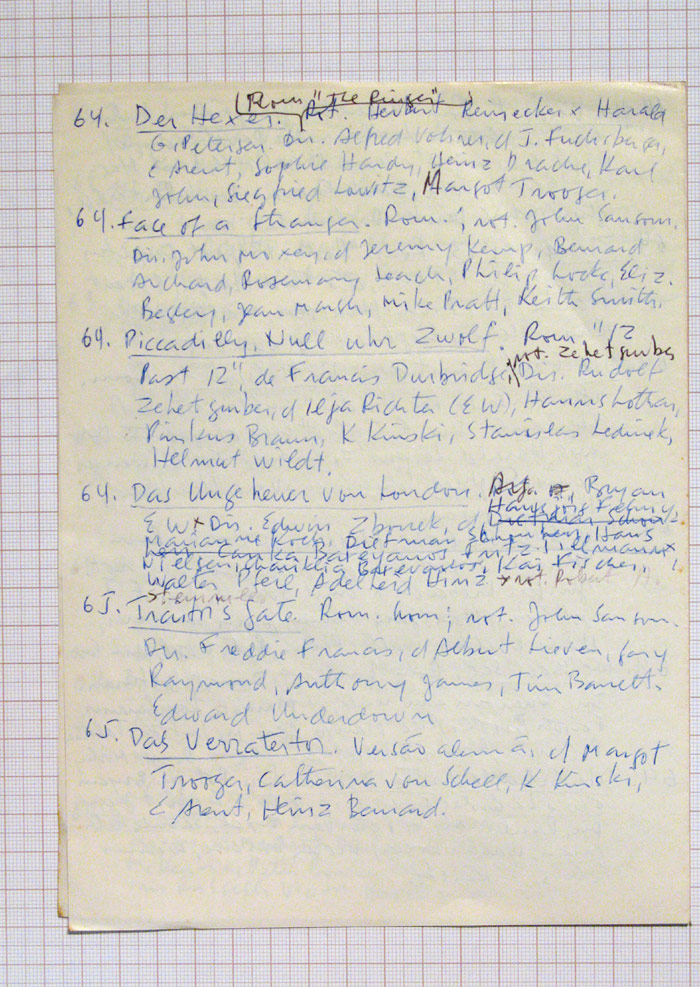 (Rom "The Ringer")
64. Der Hexer. Rot. Herbert Reinecker x Harald
G. Petersen. Dir. Alfred Vohrer, d J. Fuchsberger,
E Arent, Sophie Hardy, Heinz Drache, Karl
John, Siegfried Lowitz, Margot Trooger.
64. Face of a Stranger. Rom. ; rot. John Sansom.
Dir. John Moxey, d Jeremy Kemp, Bernard
Archard, Rosemary Leach, Philip Locke, Eliz.
Begley, Jean Marsh, Mike Pratt, Keith Smith.
64. Piccadilly, Null uhr Zwolf. Rom "12
rot. Zehetgruber
Past 12", de Francis Durbridge, Dir. Rudolf
Zehetgruber, d Ilja Richter (EW), Hanns Lothar,
Pinkus Braun, K Kinski, Stanislas Ledinek,
Helmut Wildt.
64. Das Ungeheuer von London. Bryan
Hans jörg Felmy,
E W x Dir. Edwin Zbonek, d,
Marianne Koch, Dietmar Schönherr, Hans
Nielsen, Chariklia Baxevanos, Fritz Tillmann x
Walter Pfeil, Adelheid Hinz Kai Fischer, x rot. Robert A.
Stemmle
65. Traitor's Gate. Rom. hom; rot. John Sansom.
Dir. Freddie Francis, d Albert Lieven, Gary
Raymond, Anthony James, Tim Barrett.
Edward Underdown
65. Das Verratertor. Versão alemã, d Margot
Trooger, Catherina von Schell, K Kinski,
E Arent, Heinz Bernard.